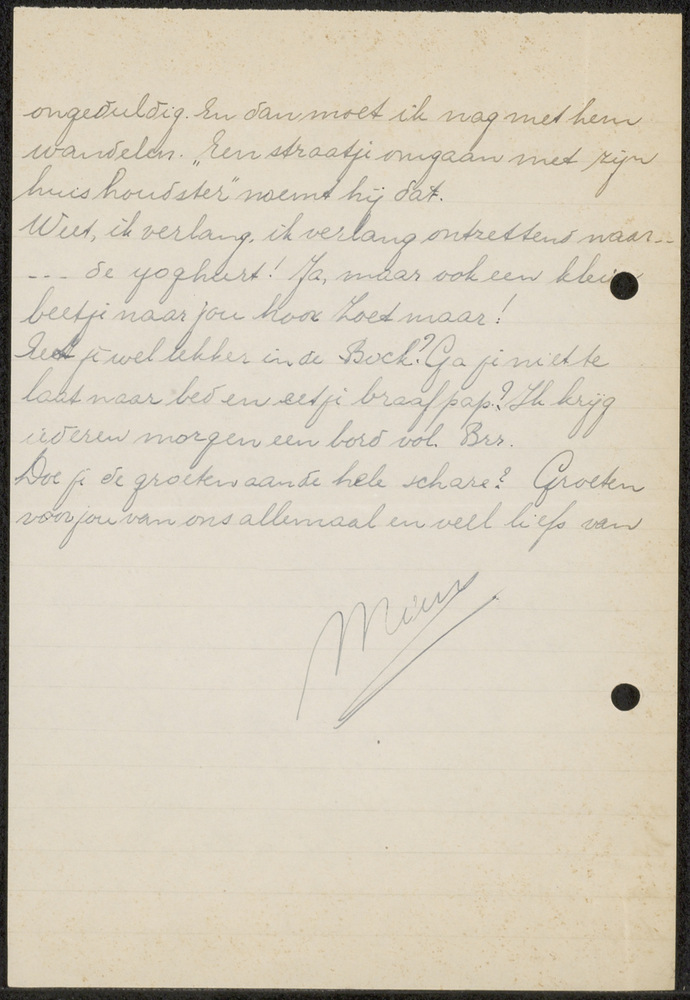 ongeduldig. En dan moet ik nog met hem
wandelen. „Een straatje omgaan met zijn
huishoudster" noemt hij dat.
Weet, ik verlang, ik verlang ontzettend naar---
--- de yoghurt! Ja, maar ook een klein
beetje naar jou hoor Loet maar!
Eet je wel lekker in de Bock? Ga je niet te
laat naar bed en eet je braaf pap? Ik krijg
iederen morgen een bord vol. Brr.
Doe je de groeten aan de hele schare? Groeten
voor jou van ons allemaal en veel liefs van
Mien